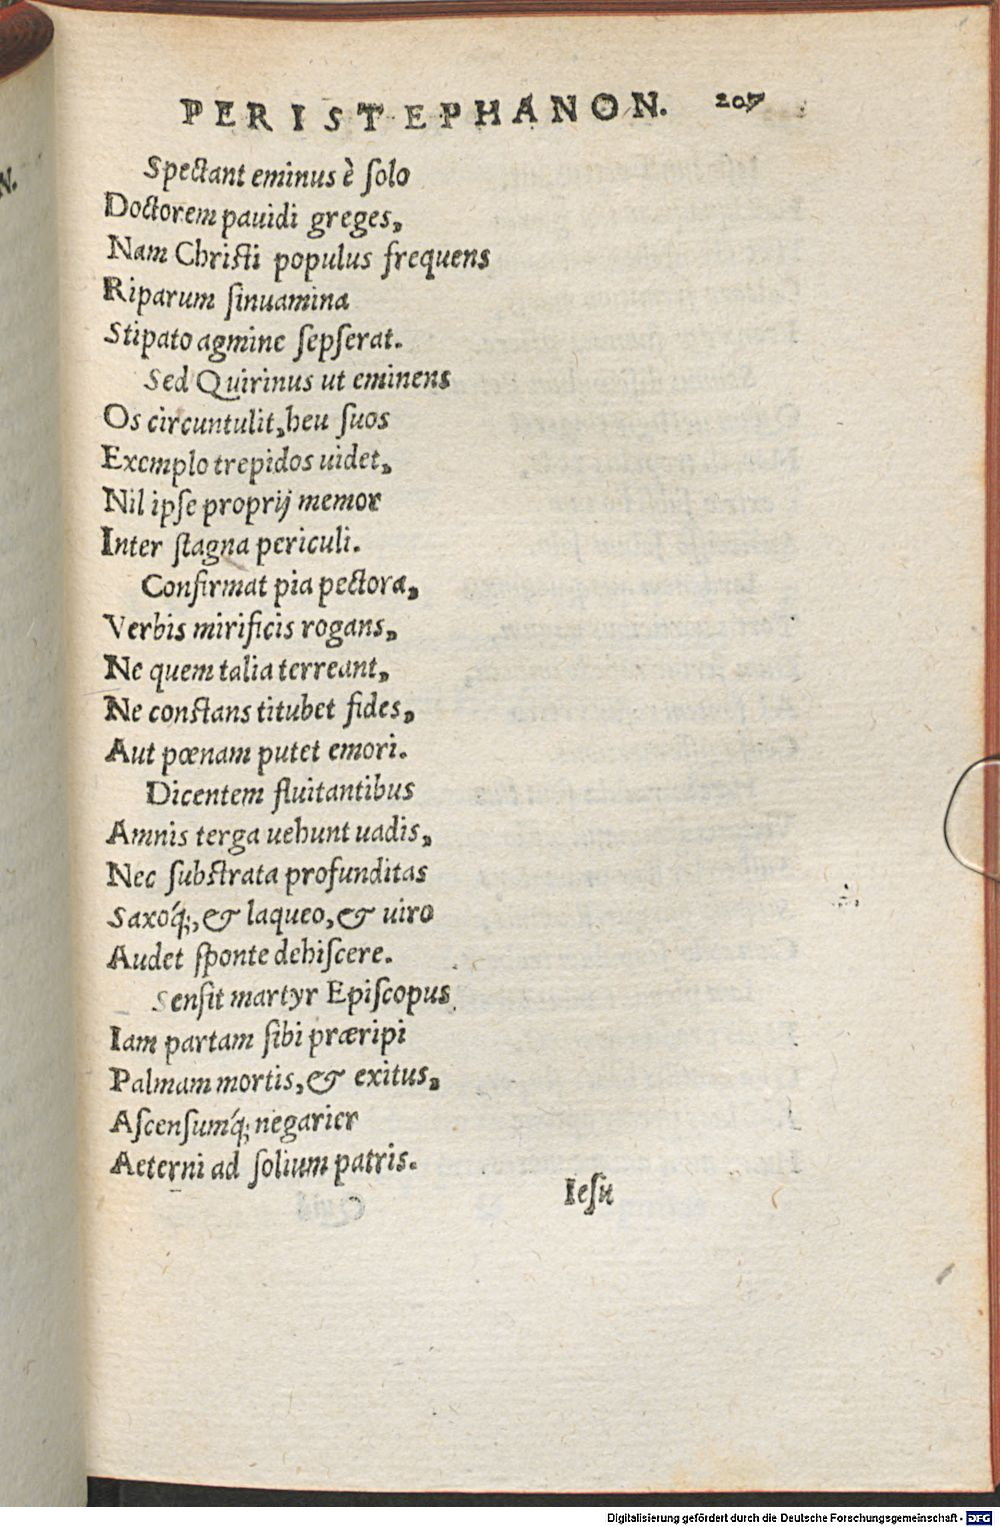 PERISTEPHANON. 207
Spectant eminus è ſolo
Doctorem pauidi greges,
Nam Chriſti populus frequens
Riparum ſinuamina
Stipato agmine ſepſerat.
Sed Quirinus ut eminens
Os circuntulit, heu ſuos
Exemplo trepidos uidet,
Nil ipſe proprij memor
Inter ſtagna periculi.
Confirmat pia pectora,
Verbis mirificis rogans,
Ne quem talia terreant,
Ne conſtans titubet fides,
Aut pœnam putet emori.
Dicentem fluitantibus
Amnis terga uehunt uadis,
Nec ſubſtrata profunditas
Saxóq;, & laqueo, & uiro
Audet ſponte dehiſcere.
Senſit martyr Epiſcopus
Iam partam ſibi præripi
Palmam mortis, & exitus,
Aſcenſumq́; negarier
Aeterni ad ſolium patris.
Ieſu
N.
Digitalisierung gefördert durch die Deutsche Forschungsgemeinschaft - DFG